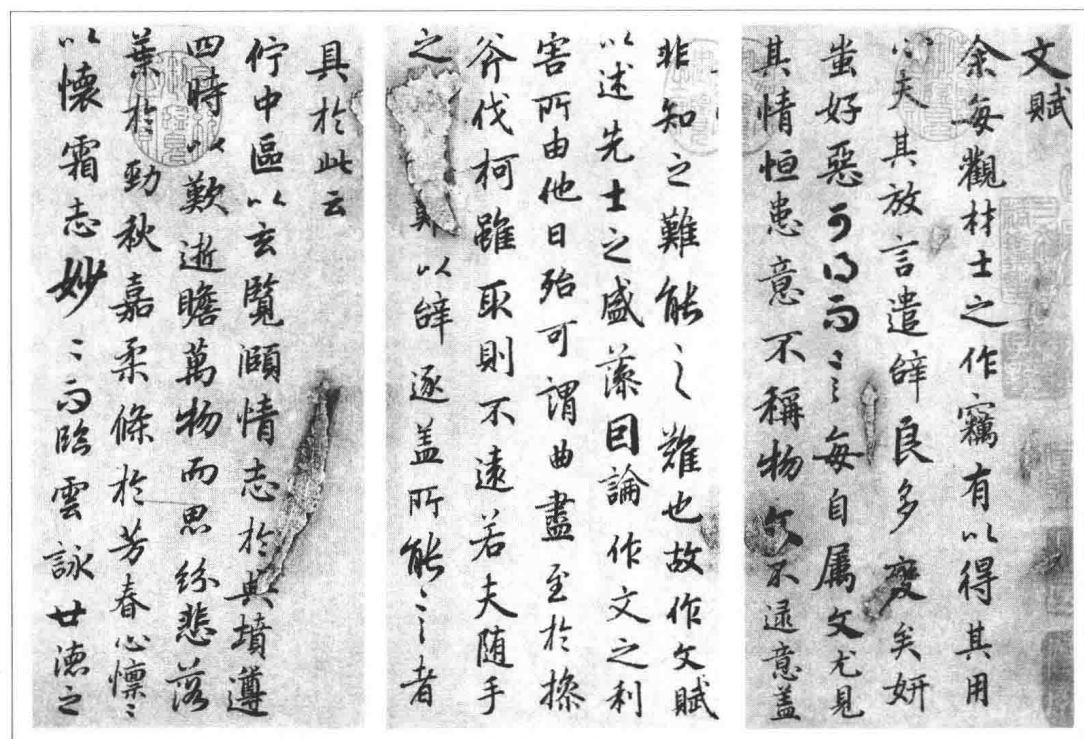 文賦
余每觀材士之作竊有以得其用
心夫其放言遣辭良多變矣妍
蚩好惡可得而言每自属文尤見
其情恒患意不稱物文不逮意盖
非知之難能之難也故作文賦
以述先士之盛藻因論作文之利
害所由他日殆可謂曲盡至於操
斧伐柯雖取則不遠若夫随手
之以辭逐盖所能言者
具於此云
佇中區以玄覽頤情志於典墳遵
四時以歎逝瞻萬物而思紛悲落
葉於勁秋嘉柔條於芳春心懍〻
以懷霜志妙〻而臨雲詠世德之